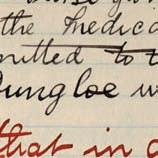 the Medica
mitted to t
Dungloe w
that in